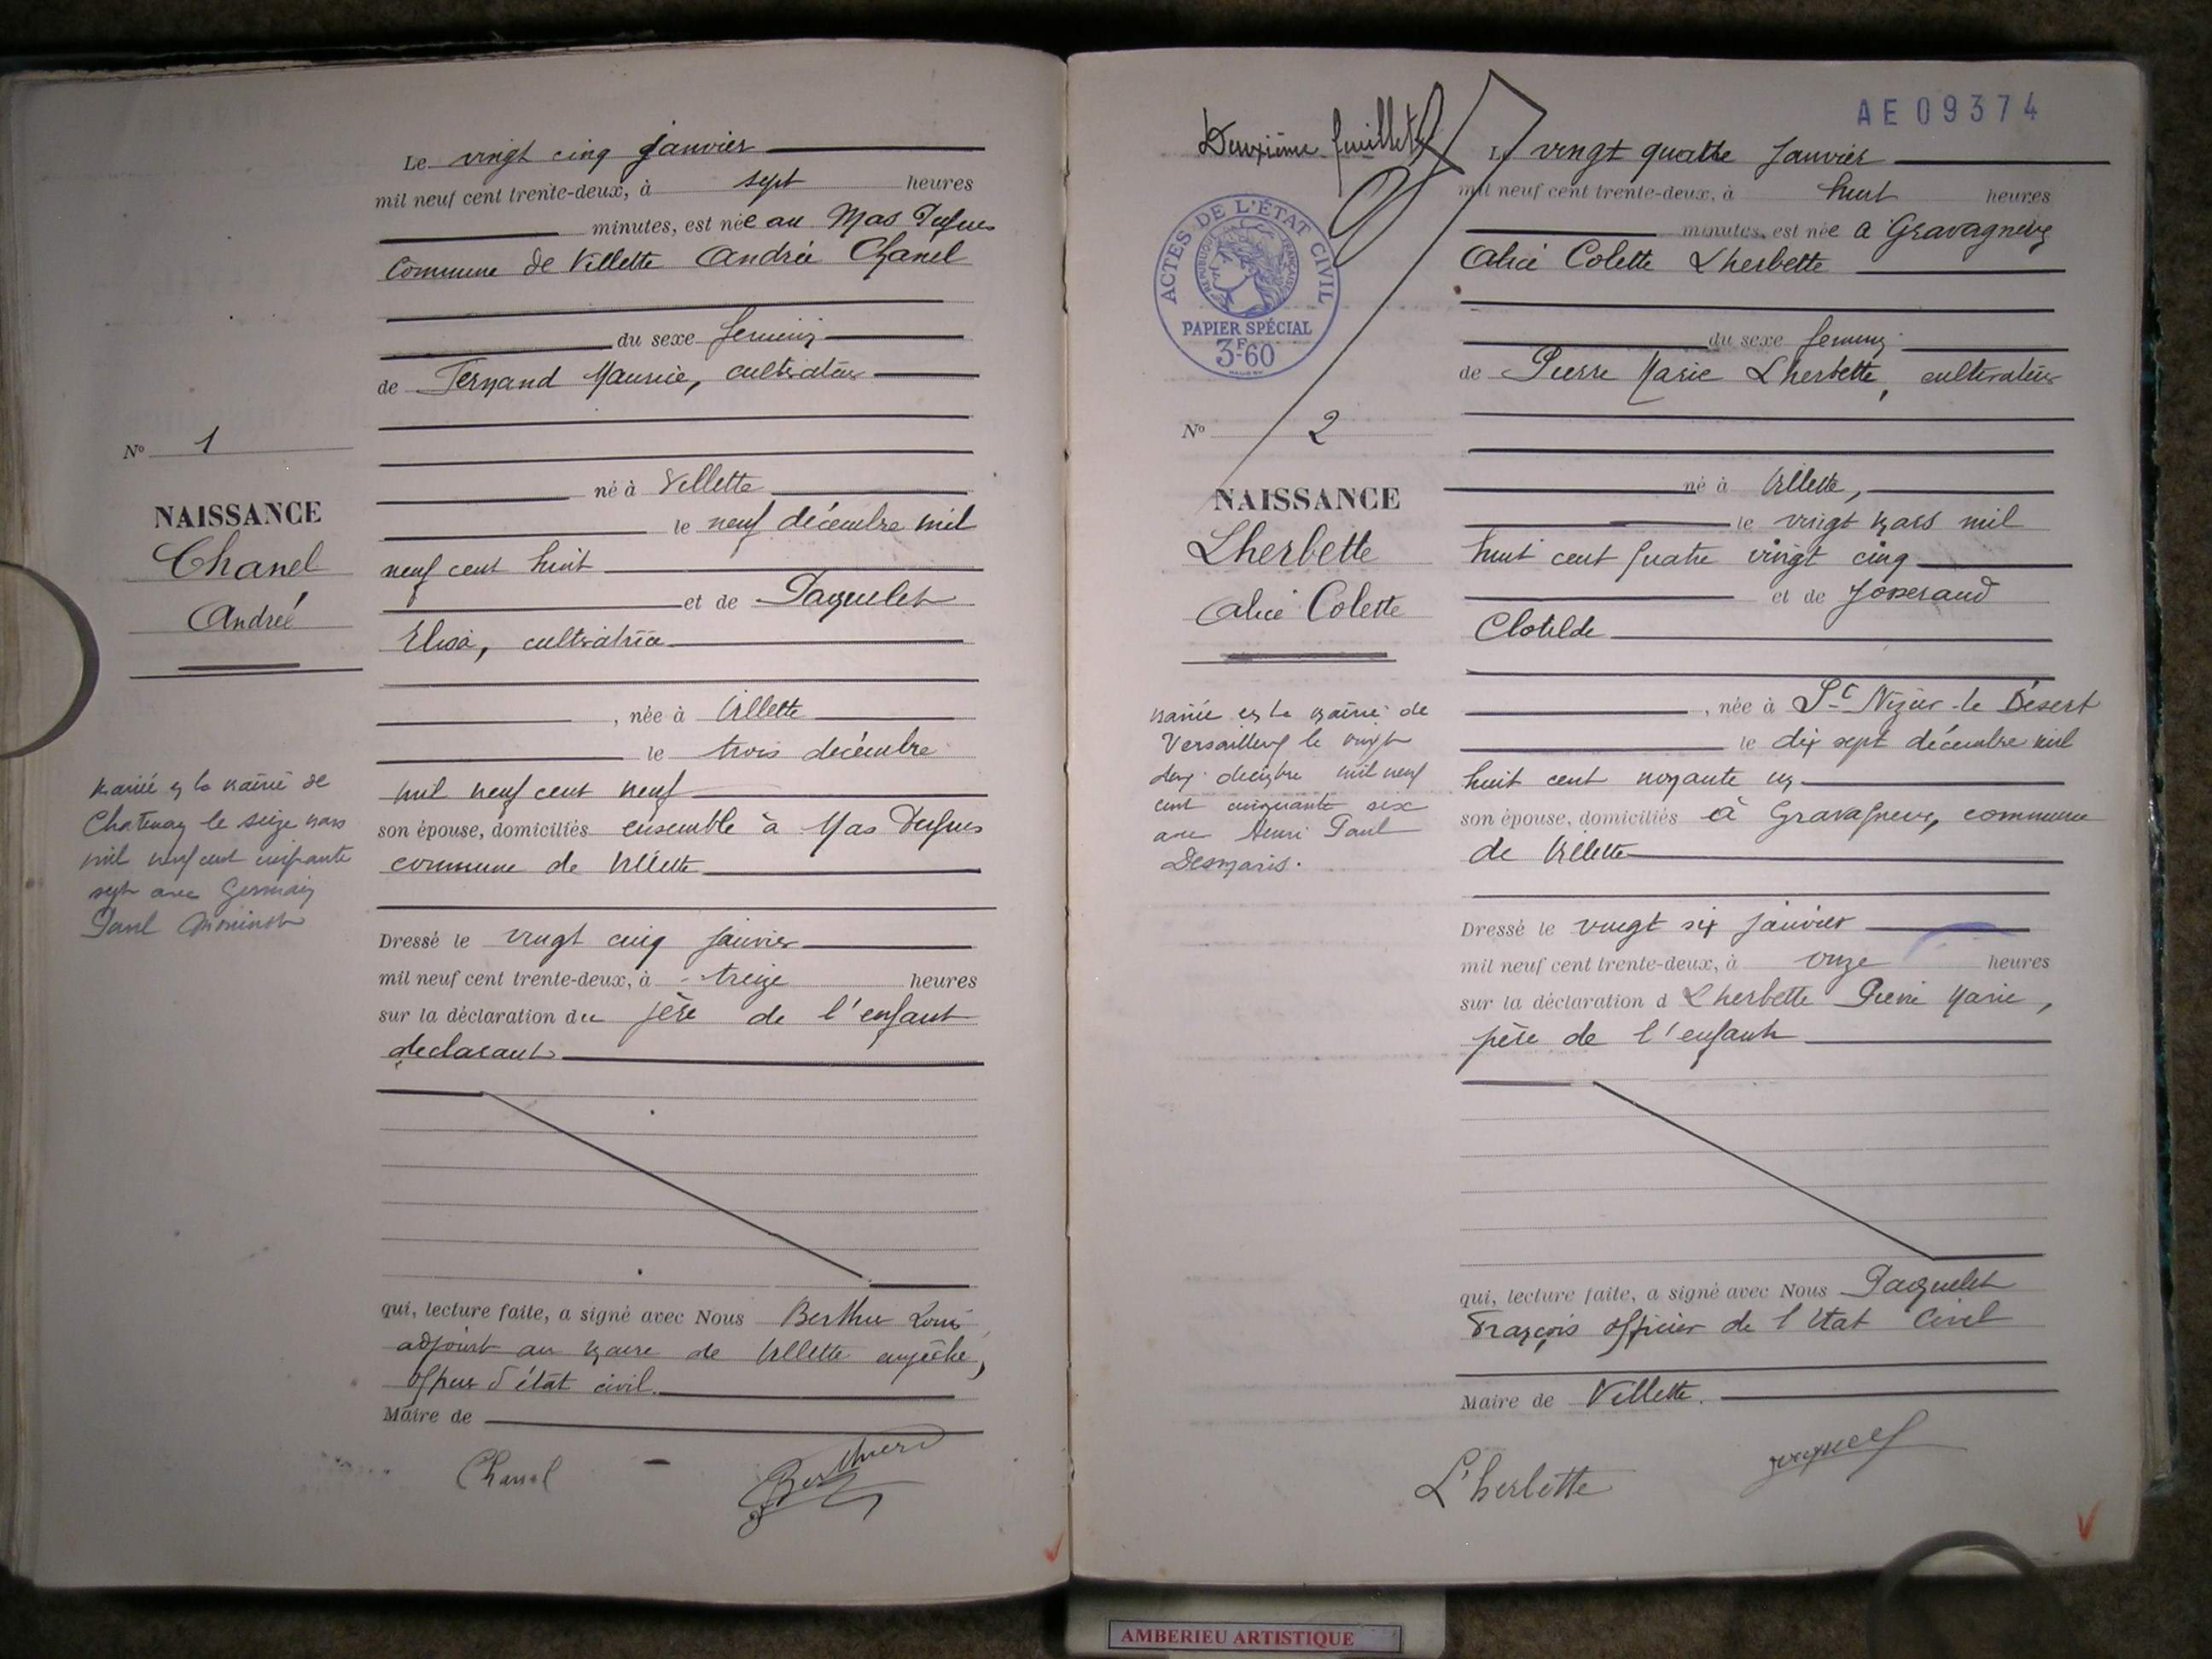 Le vingt cinq janvier
mil neuf cent trente-deux, à sept heures
minutes, est née au Mas
commune de Villette Andrée Chanel
du sexe féminin
de Fernand Maurice, cultivateur
No 1
NAISSANCE
Chanel
Andrée
né à Villette
le neuf décembre mil
neuf cent huit
et de Paquelet
Elisa, cultivatrice
, née à Villette
le trois décembre
mil neuf cent neuf
son épouse, domiciliés ensemble à Mas
commune de Villette
mariée à la mairie de
Chatenay le seize mars
mil neuf cent cinquante
sept avec Germain
Paul
Dressé le vingt cinq janvier
mil neuf cent trente-deux, à treize heures
sur la déclaration du père de l'enfant
declarant
qui, lecture faite, a signé avec Nous Berthu Louis
adjoint au maire de Villette empêché,
d'état civil.
Maire de
Chanel
AE09374
Deuxième feuillet
ACTES DE L'ÉTAT CIVIL
RÉPUBLIQUE FRANÇAISE
PAPIER SPÉCIAL
3F60
Le vingt quatre janvier
mil neuf cent trente-deux, à huit heures
minutes, est née à Gravagneux
Alice Colette Lherbette
du sexe féminin
de Pierre Marie Lherbette, cultivateur
No 2
NAISSANCE
Lherbette
Alice Colette
né à Villette,
le vingt mars mil
huit cent quatre vingt cinq
et de Josserand
Clotilde
, née à St Nizier-le Désert
le dix sept décembre mil
huit cent noyante un
son épouse, domiciliés à Gravagneux, commune
de Villette
mariée en la mairie de
Versailleux le vingt
décembre mil neuf
cent cinquante six
avec Henri Paul
Desmaris.
Dressé le vingt six janvier
mil neuf cent trente-deux, à onze heures
sur la déclaration d Lherbette Pierre Marie,
père de l'enfant
qui, lecture faite, a signé avec Nous Paquelet
François officier de l'Etat Civil
Maire de Villette.
L'herbette
AMBERIEU ARTISTIQUE